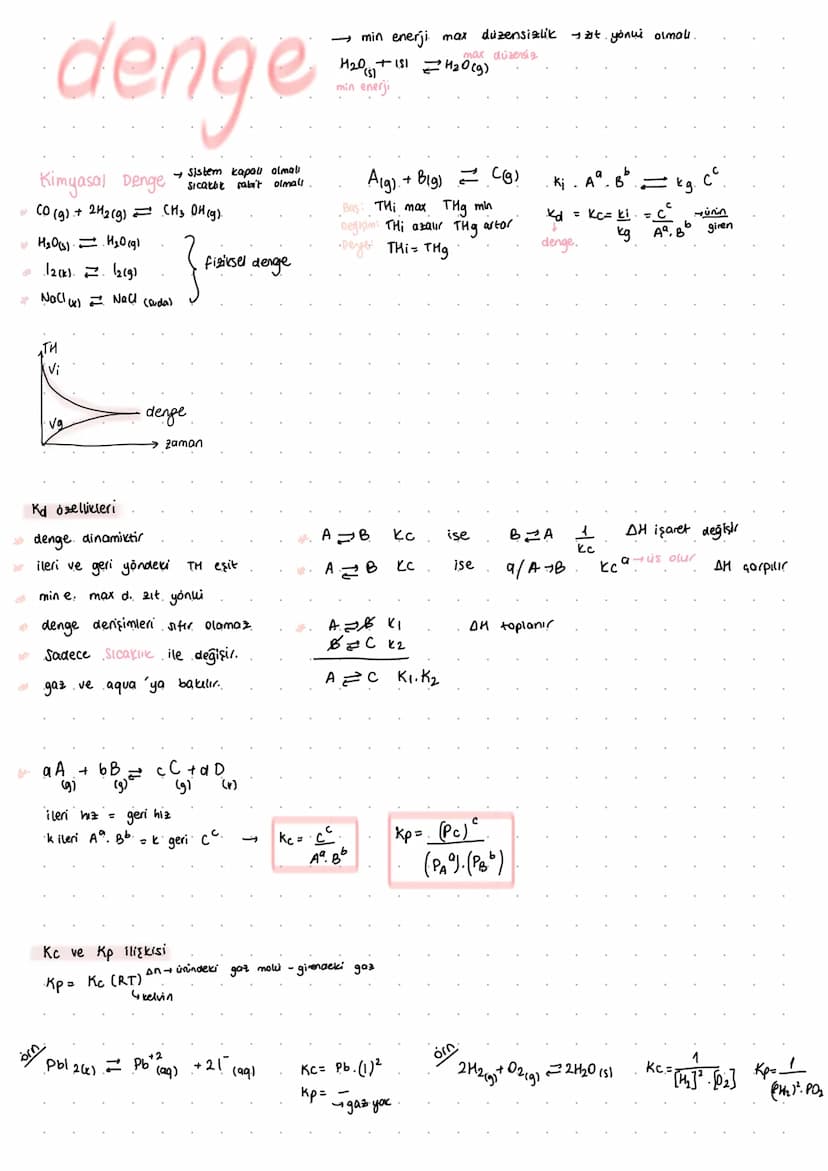 denge
→ min enerji max düzensizlik → zıt yönlü olmalı.
max düzensiz
H2O(s) + ısı ⇌ H2O(g)
min enerji
Kimyasal Denge → sistem kapalı olmalı
sıcaklık sabit olmalı.
CO(g) + 2H2(g) ⇌ CH3OH(g)
H2O(s) ⇌ H2O(g)
I2(k) ⇌ I2(g)
NaCl(k) ⇌ NaCl (suda)
fiziksel denge
A(g) + B(g) ⇌ C(g)
Baş: THi max THg min
Değişim: THi azalır THg artar
Denge: THi = THg
ki . A^a . B^b ⇌ kg . C^c
Kd = Kc = ki/kg = C^c/A^a.B^b → ürün giren
denge
TH
Vi
Vg
denge
zaman
Kd özellikleri
denge dinamiktir
ileri ve geri yöndeki TH eşit
min e, max d. zıt yönlü
denge derişimleri sıfır olamaz
Sadece sıcaklık ile değişir.
gaz ve aqua 'ya bakılır.
A ⇌ B Kc ise B ⇌ A 1/Kc ΔH işaret değişir
A ⇌ B Kc ise a/ A → B Kc^a → üs olur ΔH çarpılır
A ⇌ B K1 ΔH toplanır
B ⇌ C K2
A ⇌ C K1.K2
aA(g) + bB(g) ⇌ cC(g) + dD(k)
ileri hız = geri hız
k ileri A^a . B^b = k geri C^c → Kc = C^c/A^a.B^b
Kp = (Pc)^c/(PA^a).(PB^b)
Kc ve Kp ilişkisi
Kp = Kc (RT)^Δn → üründeki gaz molü - girendeki gaz
↳ kelvin
örn/ PbI2(k) ⇌ Pb+2(aq) + 2I-(aq) Kc = Pb.(I)^2
Kp = - → gaz yok
örn/ 2H2(g) + O2(g) ⇌ 2H2O(s) Kc = 1/[H2]^2.[O2] Kp = 1/(PH2)^2.PO2